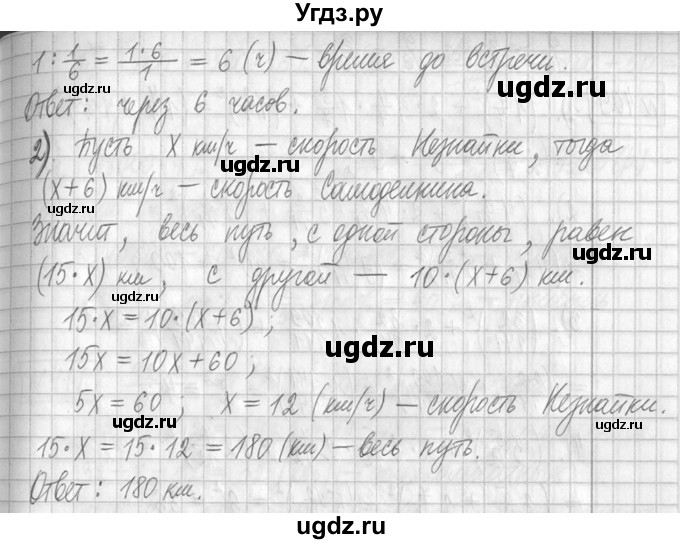 Угдз.ру
1 : 1/6 = 1·6/1 = 6 (ч) — время до встречи.
ugdz.ru ugdz.ru
Ответ: через 6 часов.
ugdz.ru
2). Пусть x км/ч — скорость Незнайки, тогда
ugdz.ru
(x+6) км/ч — скорость Самоделкина.
ugdz.ru
Значит, весь путь, с одной стороны, равен
ugdz.ru
(15·x) км, с другой — 10·(x+6) км.
ugdz.ru
15·x = 10·(x+6);
ugdz.ru
15x = 10x+60;
ugdz.ru
5x = 60; x = 12 (км/ч) — скорость Незнайки.
ugdz.ru ugdz.ru
15·x = 15·12 = 180 (км) — весь путь.
ugdz.ru
Ответ: 180 км.
ugdz.ru